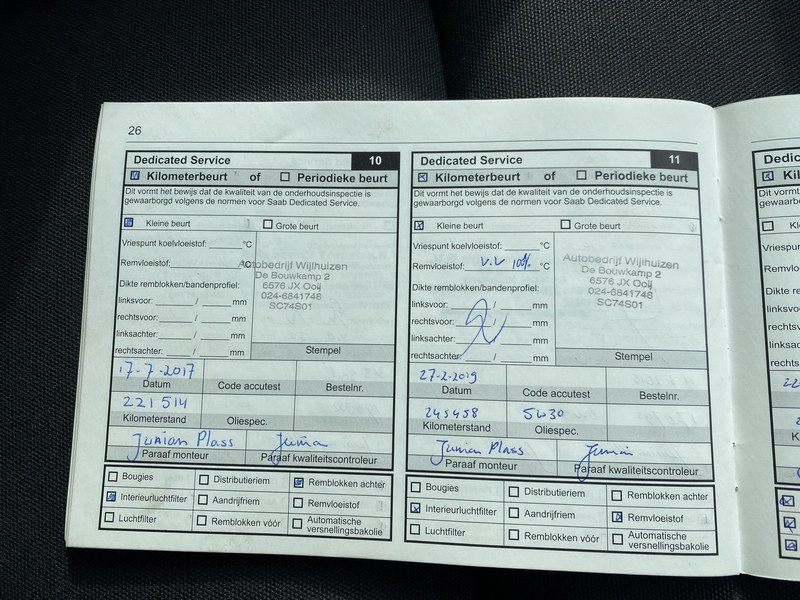 26
Dedicated Service 10
Kilometerbeurt of Periodieke beurt
Dit vormt het bewijs dat de kwaliteit van de onderhoudsinspectie is
gewaarborgd volgens de normen voor Saab Dedicated Service.
Kleine beurt Grote beurt
Vriespunt koelvloeistof: °C
Remvloeistof: °C
Autobedrijf Wijlhuizen
De Bouwkamp 2
6576 JX Ooij
024-6841748
SC74S01
Dikte remblokken/bandenprofiel:
linksvoor: / mm
rechtsvoor: / mm
linksachter: / mm
rechtsachter: / mm
Stempel
17-7-2017
Datum Code accutest Bestelnr.
221 514
Kilometerstand Oliespec.
Junian Plass
Paraaf monteur Paraaf kwaliteitscontroleur
Bougies Distributieriem Remblokken achter
Interieurluchtfilter Aandrijfriem Remvloeistof
Luchtfilter Remblokken vóór Automatische
versnellingsbakolie
Dedicated Service 11
Kilometerbeurt of Periodieke beurt
Dit vormt het bewijs dat de kwaliteit van de onderhoudsinspectie is
gewaarborgd volgens de normen voor Saab Dedicated Service.
Kleine beurt Grote beurt
Vriespunt koelvloeistof: °C
Remvloeistof: V.V 100% °C
Autobedrijf Wijlhuizen
De Bouwkamp 2
6576 JX Ooij
024-6841748
SC74S01
Dikte remblokken/bandenprofiel:
linksvoor: / mm
rechtsvoor: / mm
linksachter: / mm
rechtsachter: / mm
Stempel
27-2-2019
Datum Code accutest Bestelnr.
245458 5W30
Kilometerstand Oliespec.
Junian Plass
Paraaf monteur Paraaf kwaliteitscontroleur
Bougies Distributieriem Remblokken achter
Interieurluchtfilter Aandrijfriem Remvloeistof
Luchtfilter Remblokken vóór Automatische
versnellingsbakolie